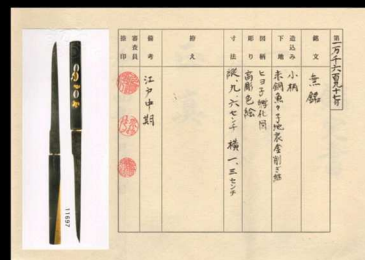 第一万千六百九十七号
銘文 無銘
造込み 小柄
下地 赤銅魚々子地裏金削ぎ継
図柄 ヒヨ子孵化図
彫り 高彫色絵
寸法 縦、九、六センチ 横一、三センチ
拵え
備考 江戸中期
審査員
11697